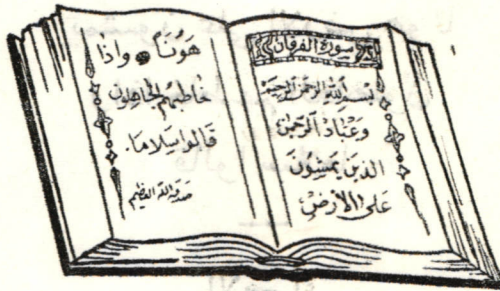 سورة الفرقان
بسم الله الرحمن الرحيم
وعباد الرحمن
الذين يمشون
على الأرض
هونا واذا
خاطبهم الجاهلون
قالوا سلاما.
صدق الله العظيم